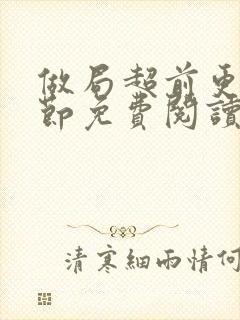 做局超前更
節免費閱讀
清寒細雨情何